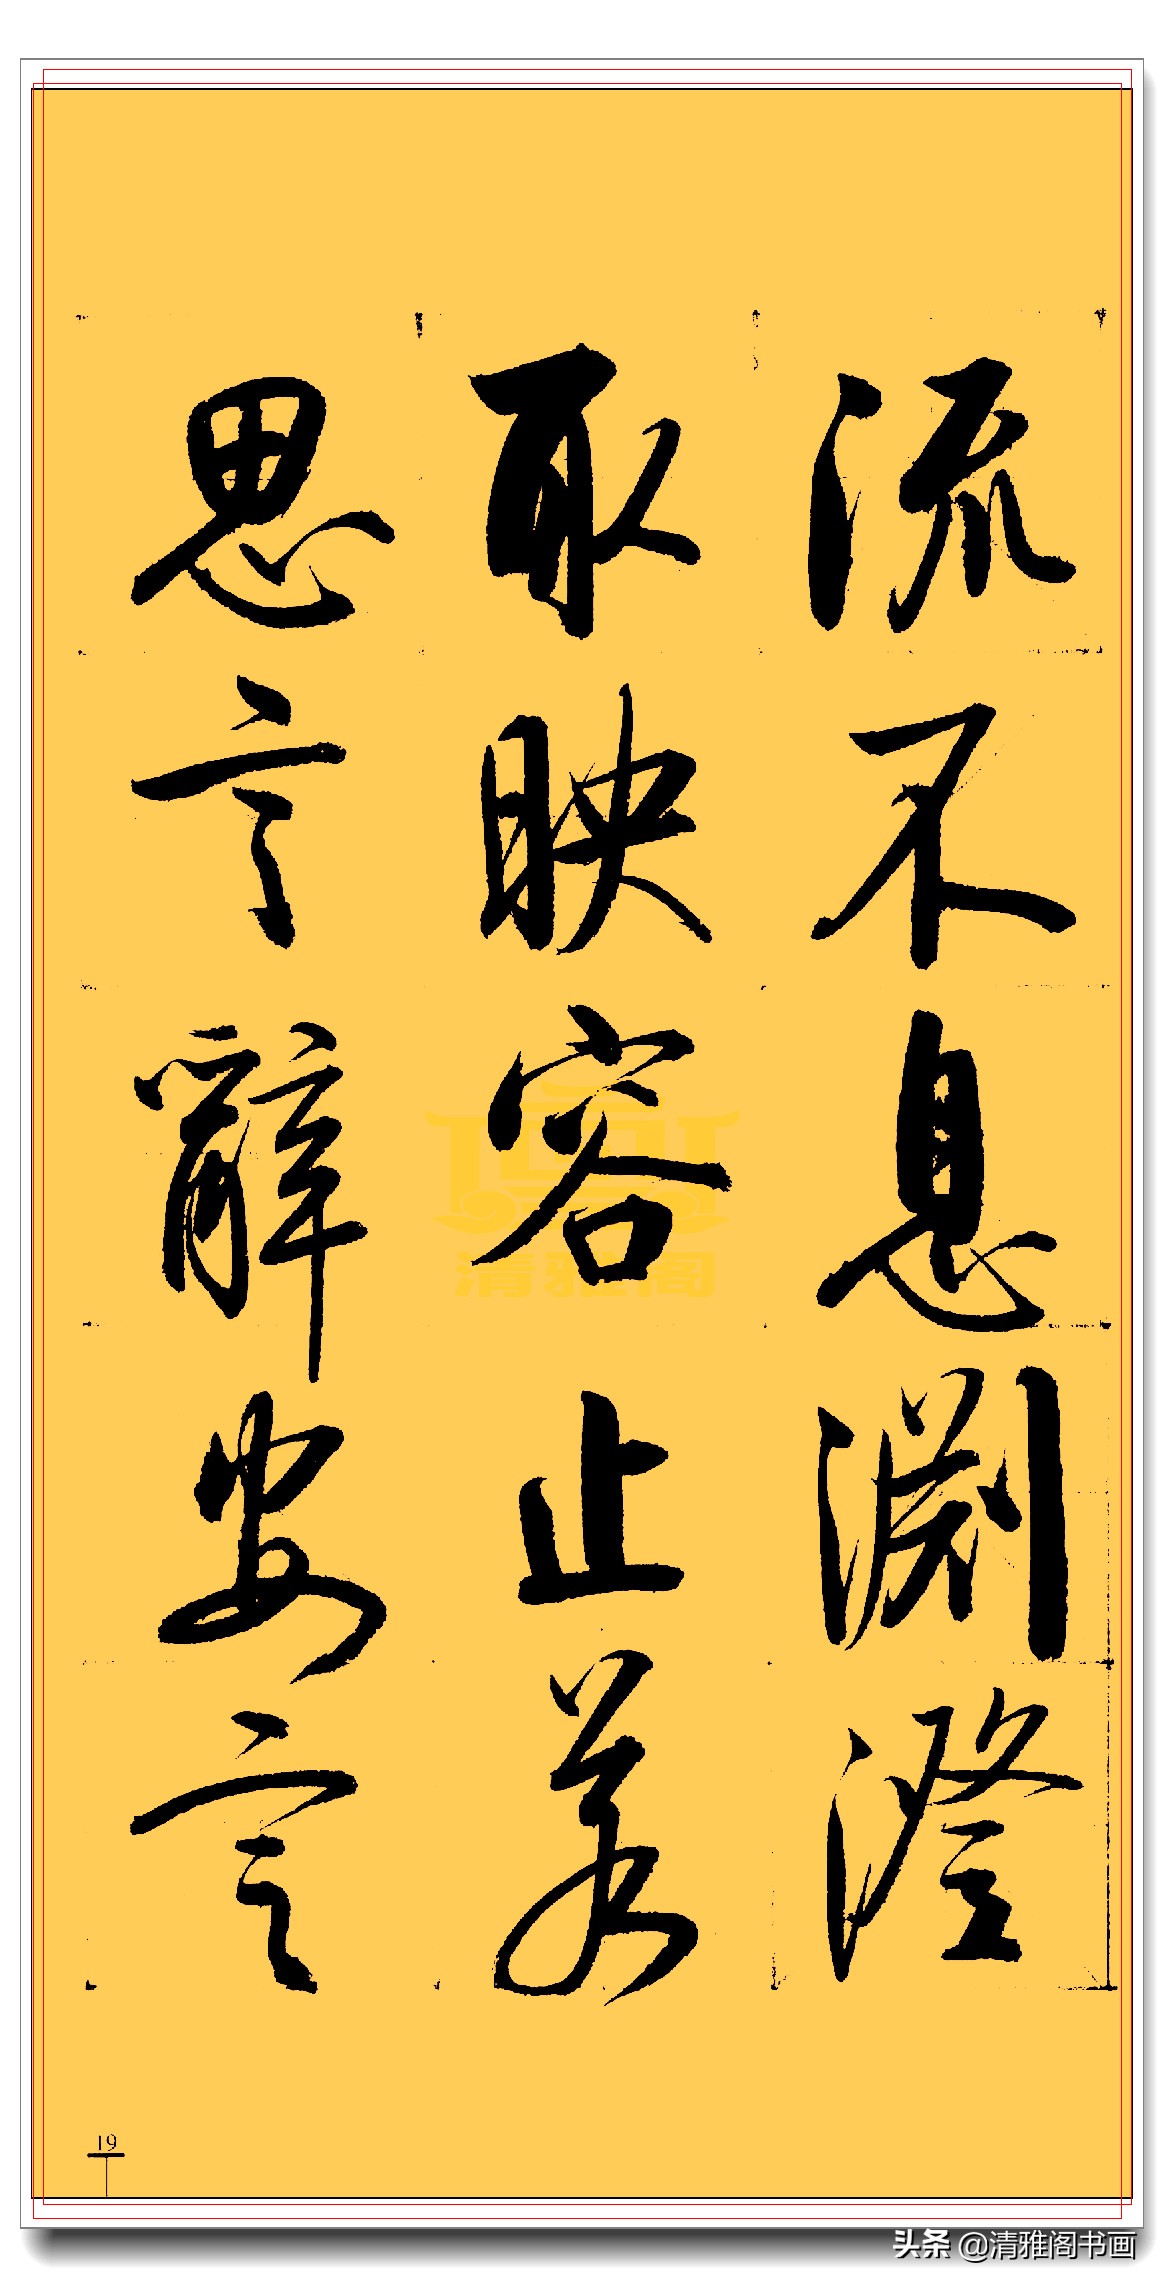 流不息渊澄
取映容止若
思言辭安言
清雅阁
19
头条 @清雅阁书画